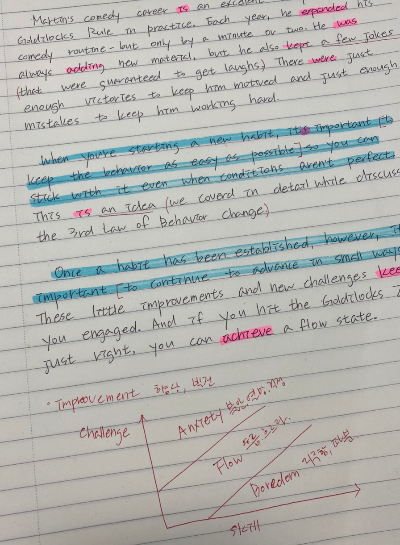 Martin's comedy career is an excellent
Goldilocks Rule in practice. Each year, he expanded his
comedy routine - but only by a minute or two. He was
always adding new material, but he also kept a few jokes
(that were guaranteed to get laughs.) There were just
enough victories to keep him motived and just enough
mistakes to keep him working hard.
When you're starting a new habit, it's important [to
keep the behavior as easy as possible] so you can
stick with it even when conditions aren't perfect.
This is an idea (we coverd in detail while discuss
the 3rd Law of Behavior Change.)
Once a habit has been established, however, it
important [to continue to advance in small ways
These little improvements and new challenges kee
you engaged. And if you hit the Goldilocks Z
just right, you can achieve a flow state.
· Improvement 향상, 발전
Challenge
Anxiety 불안, 걱정
Flow
Boredom
Skill